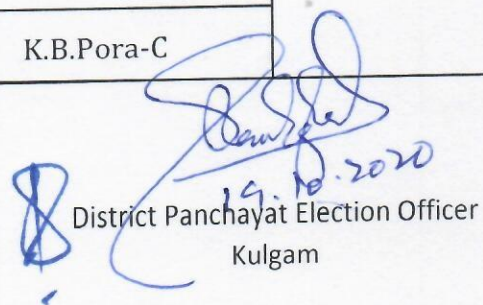 K.B.Pora-C
19.10.2020
District Panchayat Election Officer
Kulgam